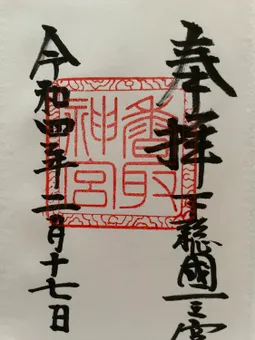 奉拝
下総國一之宮
香取
神宮
令和四年二月十七日